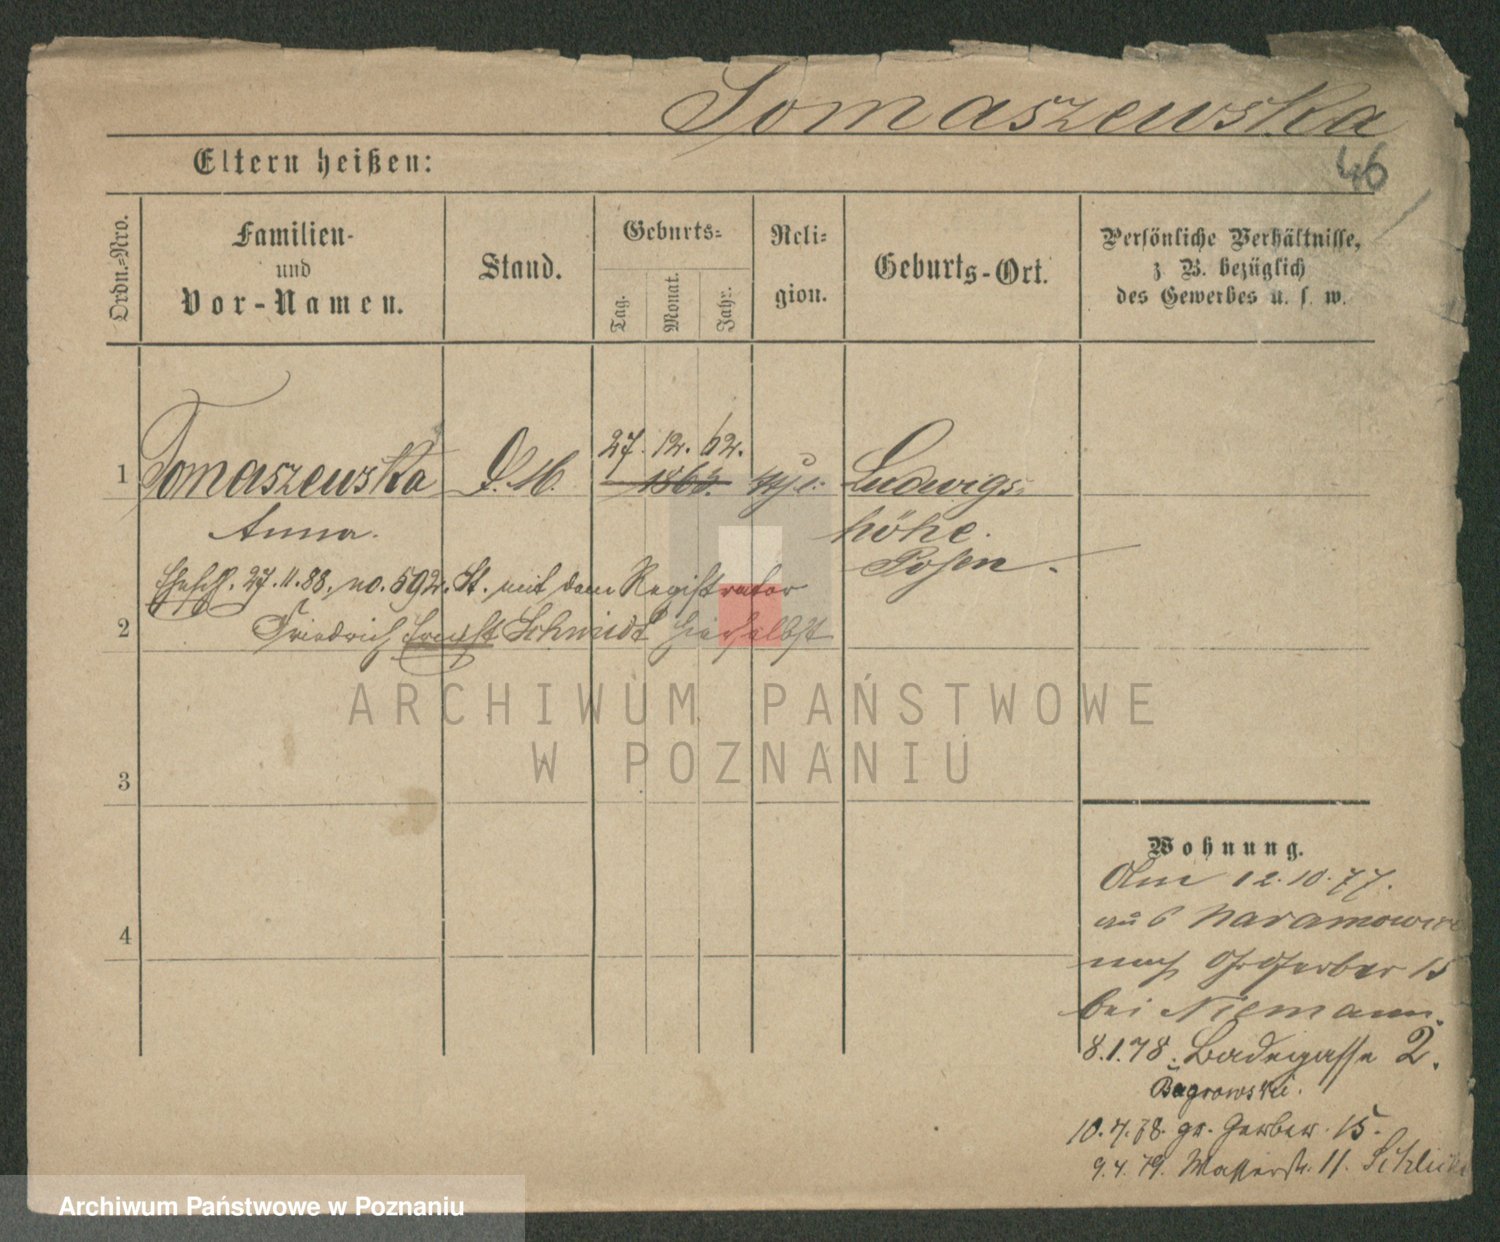 Tomaszewska
46
Eltern heißen:
Ordn.-Nro.
Familien-
und
Vor-Namen.
Stand.
Geburts-
Tag.
Monat.
Jahr.
Reli-
gion.
Geburts-Ort.
Persönliche Verhältnisse,
z. B. bezüglich
des Gewerbes u. s. w.
27. 12. 62.
1 Tomaszewska D. M. 1862. Ludwigs-
Anna. höhe.
Posen.
27.11.88. no. 592. St. mit dem Registrator
2 Friedrich Ernst Schmidt hierselbst
ARCHIWUM PAŃSTWOWE
W POZNANIU
3
4
Wohnung.
Am 12.10.77.
aus Naramowice
nach Gr Gerber 15
bei Niemann.
8.1.78. Badegasse 2.
Bagrowski.
10.7.78. gr. Gerber. 15.
9.4.79. Wasserstr. 11.
Archiwum Państwowe w Poznaniu